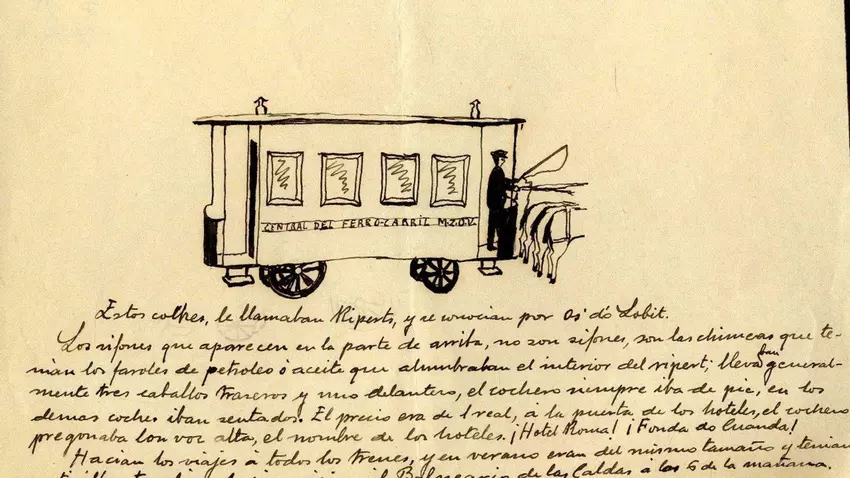 CENTRAL DEL FERRO-CARRIL M.Z.O.V.
Estos coches, le llamaban Riperts, y se conocian por Os dó Lobit.
Los sifones que aparecen en la parte de arriba, no son sifones, son las chimeneas que te-
nian los faroles de petroleo ó aceite que alumbraban el interior del ripert; llevaban general-
mente tres caballos traseros y uno delantero, el cochero siempre iba de pie, en los
demas coches iban sentados. El precio era de 1 real, á la puerta de los hoteles, el cochero
pregonaba con voz alta, el nombre de los hoteles. ¡Hotel Roma! ¡Fonda do Cuanda!
Hacian los viajes á todos los trenes, y en verano eran del mismo tamaño y tenian
el Balneario de las Caldas a las 6 de la mañana.